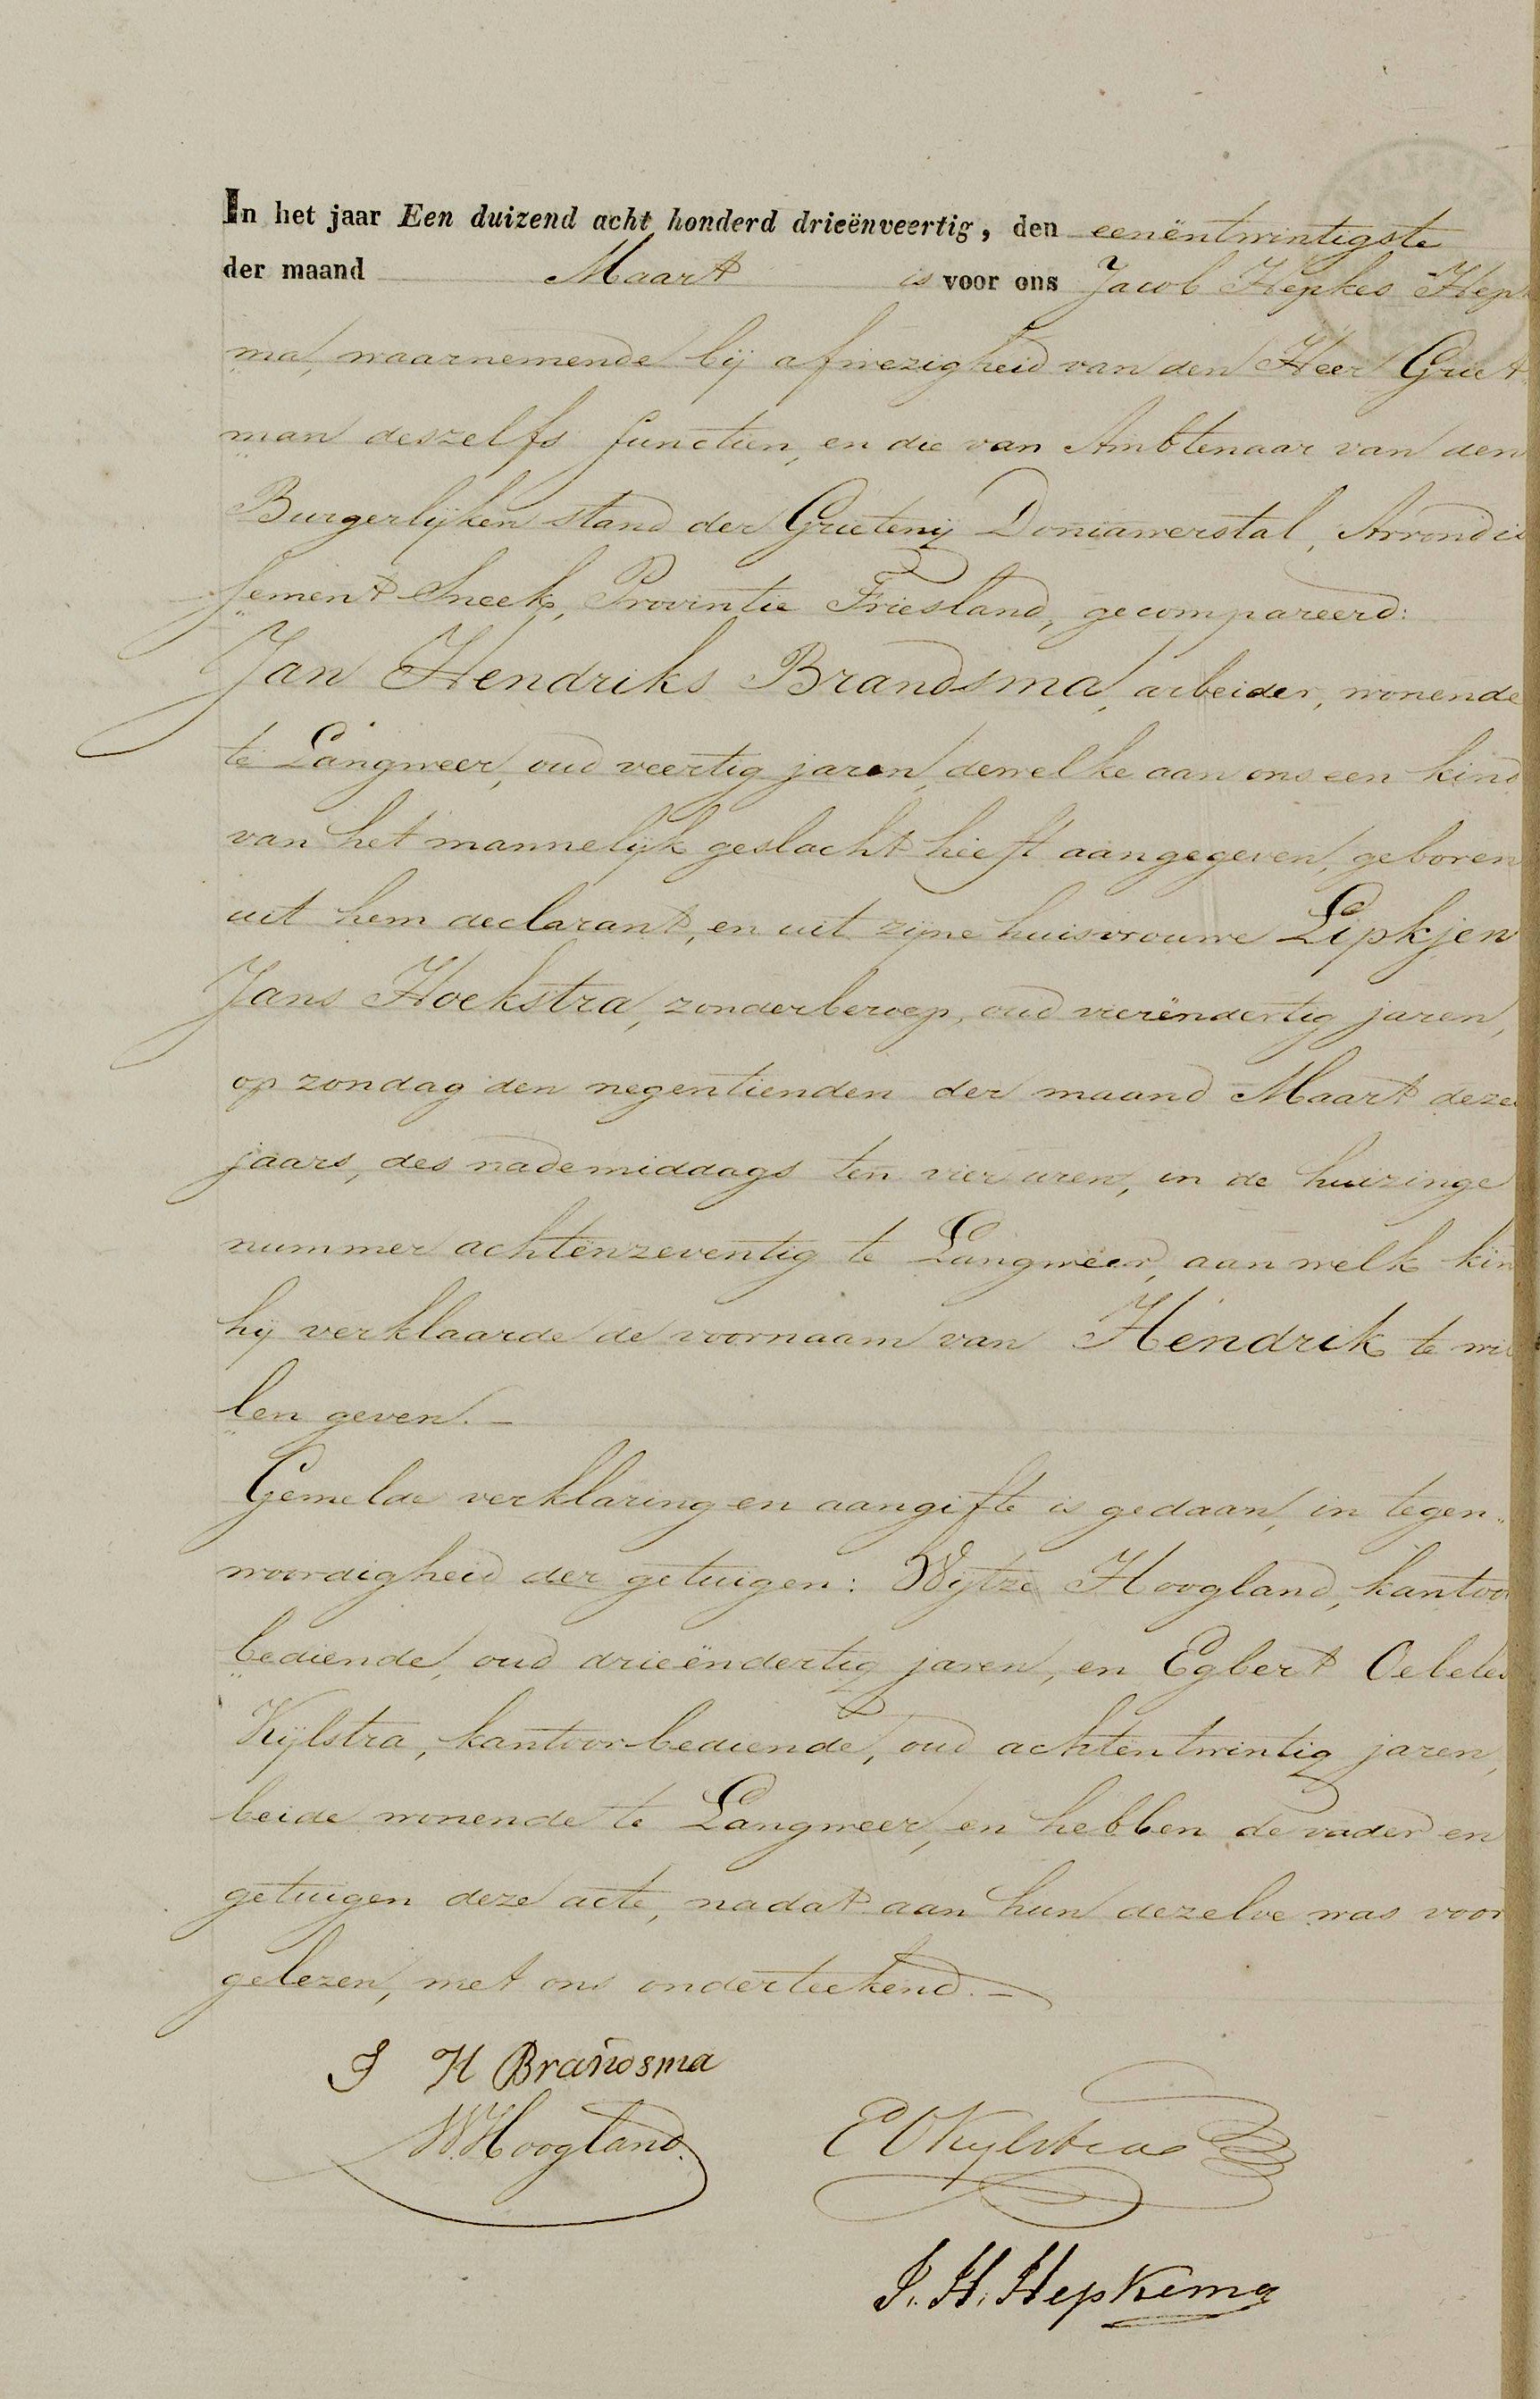 In het jaar Een duizend acht honderd drieënveertig, den eenëntwintigste
der maand Maart is voor ons Jacob Hepkes Hepke
ma, waarnemende bij afwezigheid van den Heer Griet
man deszelfs functien, en die van Ambtenaar van den
Burgerlijken stand der Grietenij Doniawerstal, Arrondis
sement Sneek, Provintie Friesland, gecompareerd:
Jan Hendriks Brandsma, arbeider, wonende
te Langweer, oud veertig jaren, dewelke aan ons een kind
van het mannelijk geslacht heeft aangegeven, geboren
uit hem declarant, en uit zijne huisvrouwe Lipkjen
Jans Hoekstra, zonder beroep, oud vierëndertig jaren,
op zondag den negentienden der maand Maart dezes
jaars, des nademiddags ten vier uren, in de huizinge
nummer achtënzeventig te Langweer, aan welk kin
hij verklaarde de voornaam van Hendrik te wil
len geven. —
Gemelde verklaring en aangifte is gedaan, in tegen„
woordigheid der getuigen: Wijtze Hoogland, kantoor
bediende, oud drieëndertig jaren, en Egbert Oebeles
Kijlstra, kantoorbediende, oud achtentwintig jaren,
beide wonende te Langweer, en hebben de vader en
getuigen deze acte, nadat aan hun dezelve was voor
gelezen, met ons onderteekend. —
J H Brandsma
W. Hoogland. E O Kylstra
J. H. Hepkema